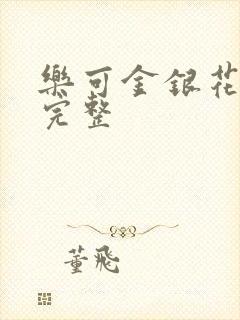 樂可金銀花
完整
董飛